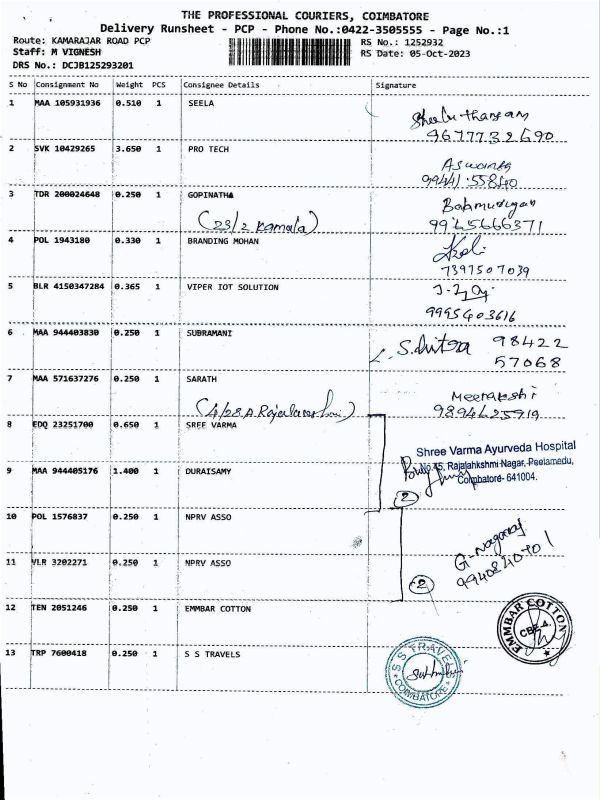 THE PROFESSIONAL COURIERS, COIMBATORE
Delivery Runsheet - PCP - Phone No.:0422-3505555 - Page No.:1
Route: KAMARAJAR ROAD PCP RS No.: 1252932
Staff: M VIGNESH RS Date: 05-Oct-2023
DRS No.: DCJB125293201
S No Consignment No Weight PCS Consignee Details Signature
1 MAA 105931936 0.510 1 SEELA
9677732690
2 SVK 10429265 3.650 1 PRO TECH
99441 55840
3 TDR 200024648 0.250 1 GOPINATHA
(23/2 Kamala) 9945666371
4 POL 1943180 0.330 1 BRANDING MOHAN
7397507039
5 BLR 4150347284 0.365 1 VIPER IOT SOLUTION
9995403616
6 MAA 944403830 0.250 1 SUBRAMANI
98422
57068
7 MAA 571637276 0.250 1 SARATH Meenakshi
9894625919
8 EDQ 23251700 0.650 1 SREE VARMA
Shree Varma Ayurveda Hospital
No.45, Rajalahkshmi Nagar, Peelamedu,
Coimbatore- 641004.
9 MAA 944405176 1.400 1 DURAISAMY
2
10 POL 1576837 0.250 1 NPRV ASSO
G. Nagaraj
11 VLR 3202271 0.250 1 NPRV ASSO
2
12 TEN 2051246 0.250 1 EMMBAR COTTON
EMMBAR COTTON
CBE-4.
13 TRP 7600418 0.250 1 S S TRAVELS
S S TRAVELS
COIMBATORE